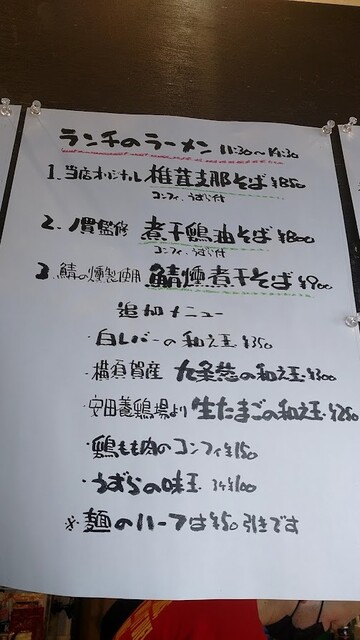 ランチのラーメン 11:30〜14:30
1.当店オリジナル 椎茸支那そば ¥850
コンフィ、うずら付
2. 煮干鶏油そば ¥800
コンフィ、うずら付
3.鯖の燻製使用 鯖燻煮干そば ¥900
追加メニュー
・白レバーの和え玉 ¥350
・横須賀産 九条葱の和え玉 ¥300
・安田養鶏場より 生たまごの和え玉 ¥250
・鶏もも肉のコンフィ ¥150
・うずらの味玉 3ケ ¥100
※麺のハーフは¥50引きです